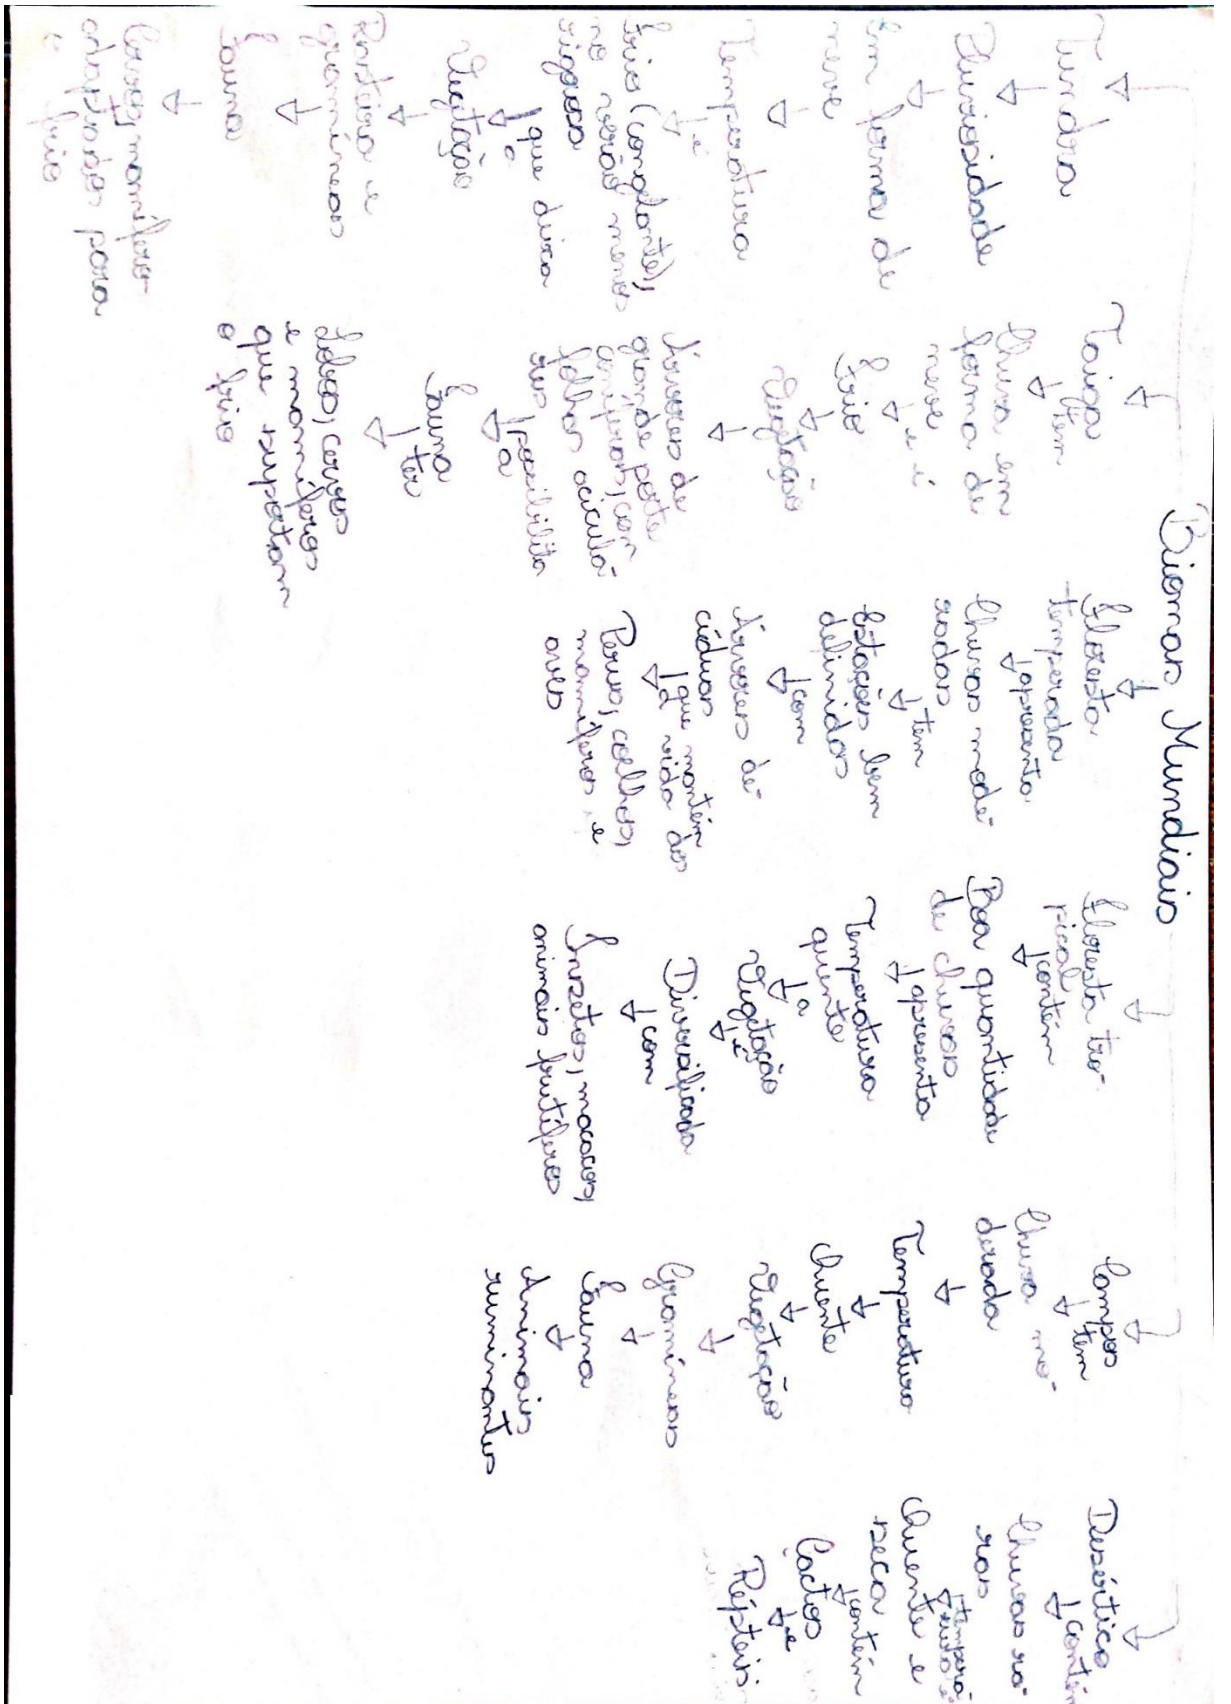 Biomas Mundiais
Tundra
Pluviosidade
Em forma de
neve
Temperatura
é
Frio (congelante),
no verão menos
rigoroso
que deixa
a
Vegetação
Rasteira e
gramíneas
Fauna
adaptados para
o frio
Taiga
tem
Chuva em
forma de
neve
e é
Frio
Vegetação
Árvores de
grande porte
coníferas, com
folhas aciculá-
res
possibilita
a
Fauna
ter
Lobos, cervos
e mamíferos
que suportam
o frio
Floresta
temperada
apresenta
Chuvas mode-
radas
tem
Estações bem
definidas
com
Árvores de-
cíduas
que mantém
a vida dos
Perus, coelhos,
mamíferos e
aves
Floresta tro-
pical
contém
Boa quantidade
de chuvas
apresenta
Temperatura
quente
a
Vegetação
é
Diversificada
com
Insetos, macacos,
animais frutíferos
Campos
tem
Chuva mo-
derada
Temperatura
Quente
Vegetação
Gramíneas
Fauna
Animais
ruminantes
Desértico
contém
Chuvas ra-
ras
temperа-
tura é
Quente e
seca
contém
Cactos
e
Répteis